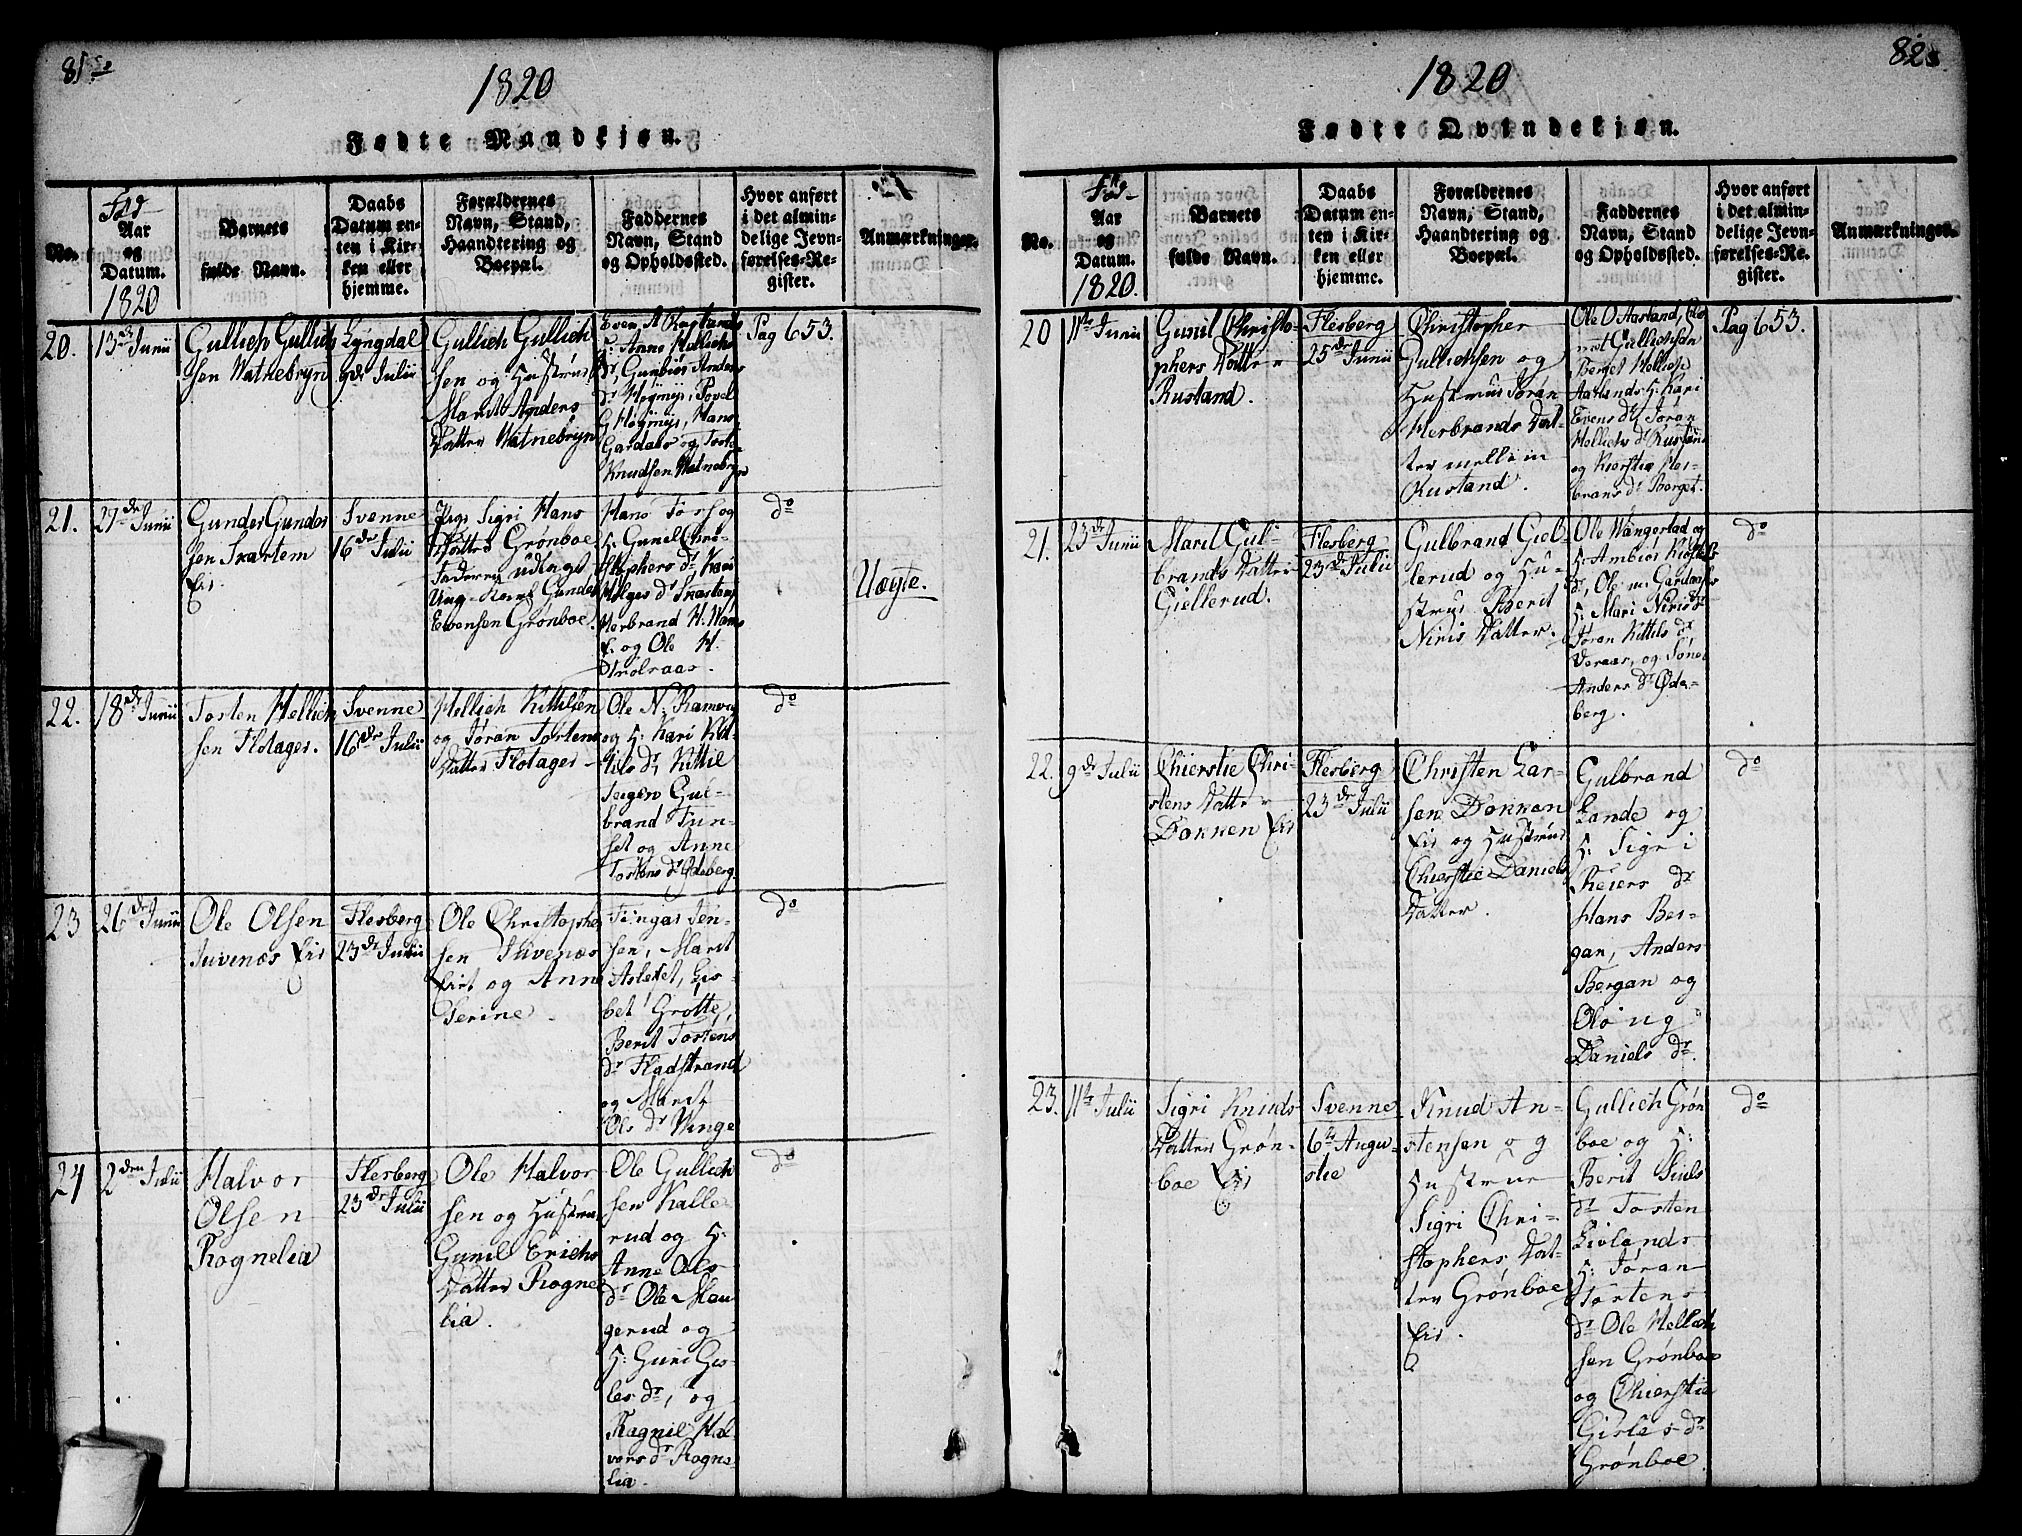 81.
1820
Fødte Mandkjøn.
No.
Fød-
Aar
og
Datum.
1820
Barnets
fulde Navn.
Daabs
Datum en-
ten i Kir-
ken eller
hjemme.
Forældrenes
Navn, Stand,
Haandtering og
Boepæl.
Faddernes
Navn, Stand
og Opholdssted.
Hvor anført
i det almin-
delige Jevn-
førelses-Re-
gister.
Anmærkninger.
20.
13de Junii
Gullich Gullich
sen Watnebryn
Lyngdal
9de Julii
Gullich Gullich
sen og Hustrue
Marit Anders
Datter Watnebryn
Even A Rustand
H: Anne Hellichs
Dr, Gunbiør Anders
Dr Høgmyr, Povel
G Høgmyr, Hans
Gardaas og Torst
Knudsen Watnebryn
Pag 653.
21.
27de Junii
Gunder Gunder
sen Skartem
Eie
Svenne
16de Julii
Pige Sigri Hans
Datter Grønboe
Faderen udlagt
Ung-Karl Gunder
Evensen Grønboe.
Hans Tors og
H: Gunil Chri
stophers Dr Kari
Helges Dr Skartem,
Herbrand H. Hans
E. og Ole H.
do
Uægte.
22.
18de Junii
Torsten Hellich
sen Flotager.
Svenne
16de Julii
Hellich Kittilsen
og Jøran Torstens
Datter Flotager
Ole N. Ramberg
og H: Kari Kit
tils Dr, Kittil
Teigen Gul-
brand Tun-
set og Anne
Torstens Dr Ødeberg
do
23
26de Junii
Ole Olsen
Juvenæs Eie
Flesberg
23de Julii
Ole Christophe
sen Juvenæs
Eiet og Anne
Serine.
Tingar Jen-
sen, Marit
Aslefet, Gis-
bet Grotte,
Berit Torstens
Dr Fladstrand
og Marit
Ols Dr Winge
do
24
2den Julii
Halvor
Olsen
Rognelia
Flesberg
23de Julii
Ole Halvor
sen og Hustrue
Gunil Erichs
Datter Rogne
lia.
Ole Gullich
sen Kalle
rud og H:
Anne Ols
Dr Ole Mau
gerud og
H: Guri Gis-
les Dr, og
Ragnil Hal
vors Dr Rogne-
lia.
do
82.
1820
Fødte Qvindekjøn.
No.
Fød-
Aar
og
Datum.
1820.
Barnets
fulde Navn.
Daabs
Datum en-
ten i Kir-
ken eller
hjemme.
Forældrenes
Navn, Stand,
Haandtering og
Boepæl.
Faddernes
Navn, Stand
og Opholdssted.
Hvor anført
i det almin-
delige Jevn-
førelses-Re-
gister.
Anmærkninger.
20
11te Junii
Gunil Christo-
phers Datter
Rustand.
Flesberg
25de Junii
Christopher
Gullichsen og
Hustrue Jøran
Herbrands Dat-
ter mellem
Rustand.
Ole O Aasland,
Gullichsen
Berget Hellich
Aaslands H: Kari
Evens Dr Jøran
Hellichs Dr Rustand
og Kierstie Her-
brans Dr Berget.
Pag 653.
21.
23de Junii
Maril Gul-
brands Datter
Giellerud.
Flesberg
23de Julii
Gulbrand Giel-
lerud og Hu-
strue Berit
Niris Datter.
Ole Wangestad og
H: Ambiør
Dr, Ole m. Gardaas
H: Mari Niris Dr
Jøran Kittils Dr
Veraas, og Tone
Anders Dr Øde-
berg.
do
22.
9de Julii
Chierstie Chri-
stens Datter
Dokken Eie
Flesberg
23de Julii
Christen Lar-
sen Dokken
Eie og Hustrue
Chierstie Daniels
Datter.
Gulbrand
Lande og
H: Sigri
Reiers Dr
Hans Ber-
gan, Anders
Bergan og
Olaug
Daniels Dr.
do
23.
11te Julii
Sigri Knuds
Datter Grøn-
boe Eie
Svenne
6te Augu-
stie
Knud An-
stensen og
Hustrue
Sigri Chri-
stophers Dat-
ter Grønboe
Eie.
Gullich Grøn
boe og H:
Berit Niels
Dr Torsten
Livlands
H: Jøran
Tortens
Dr Ole Hellich
sen Grønboe
og Chierstie
Gisles Dr
Grønboe.
do